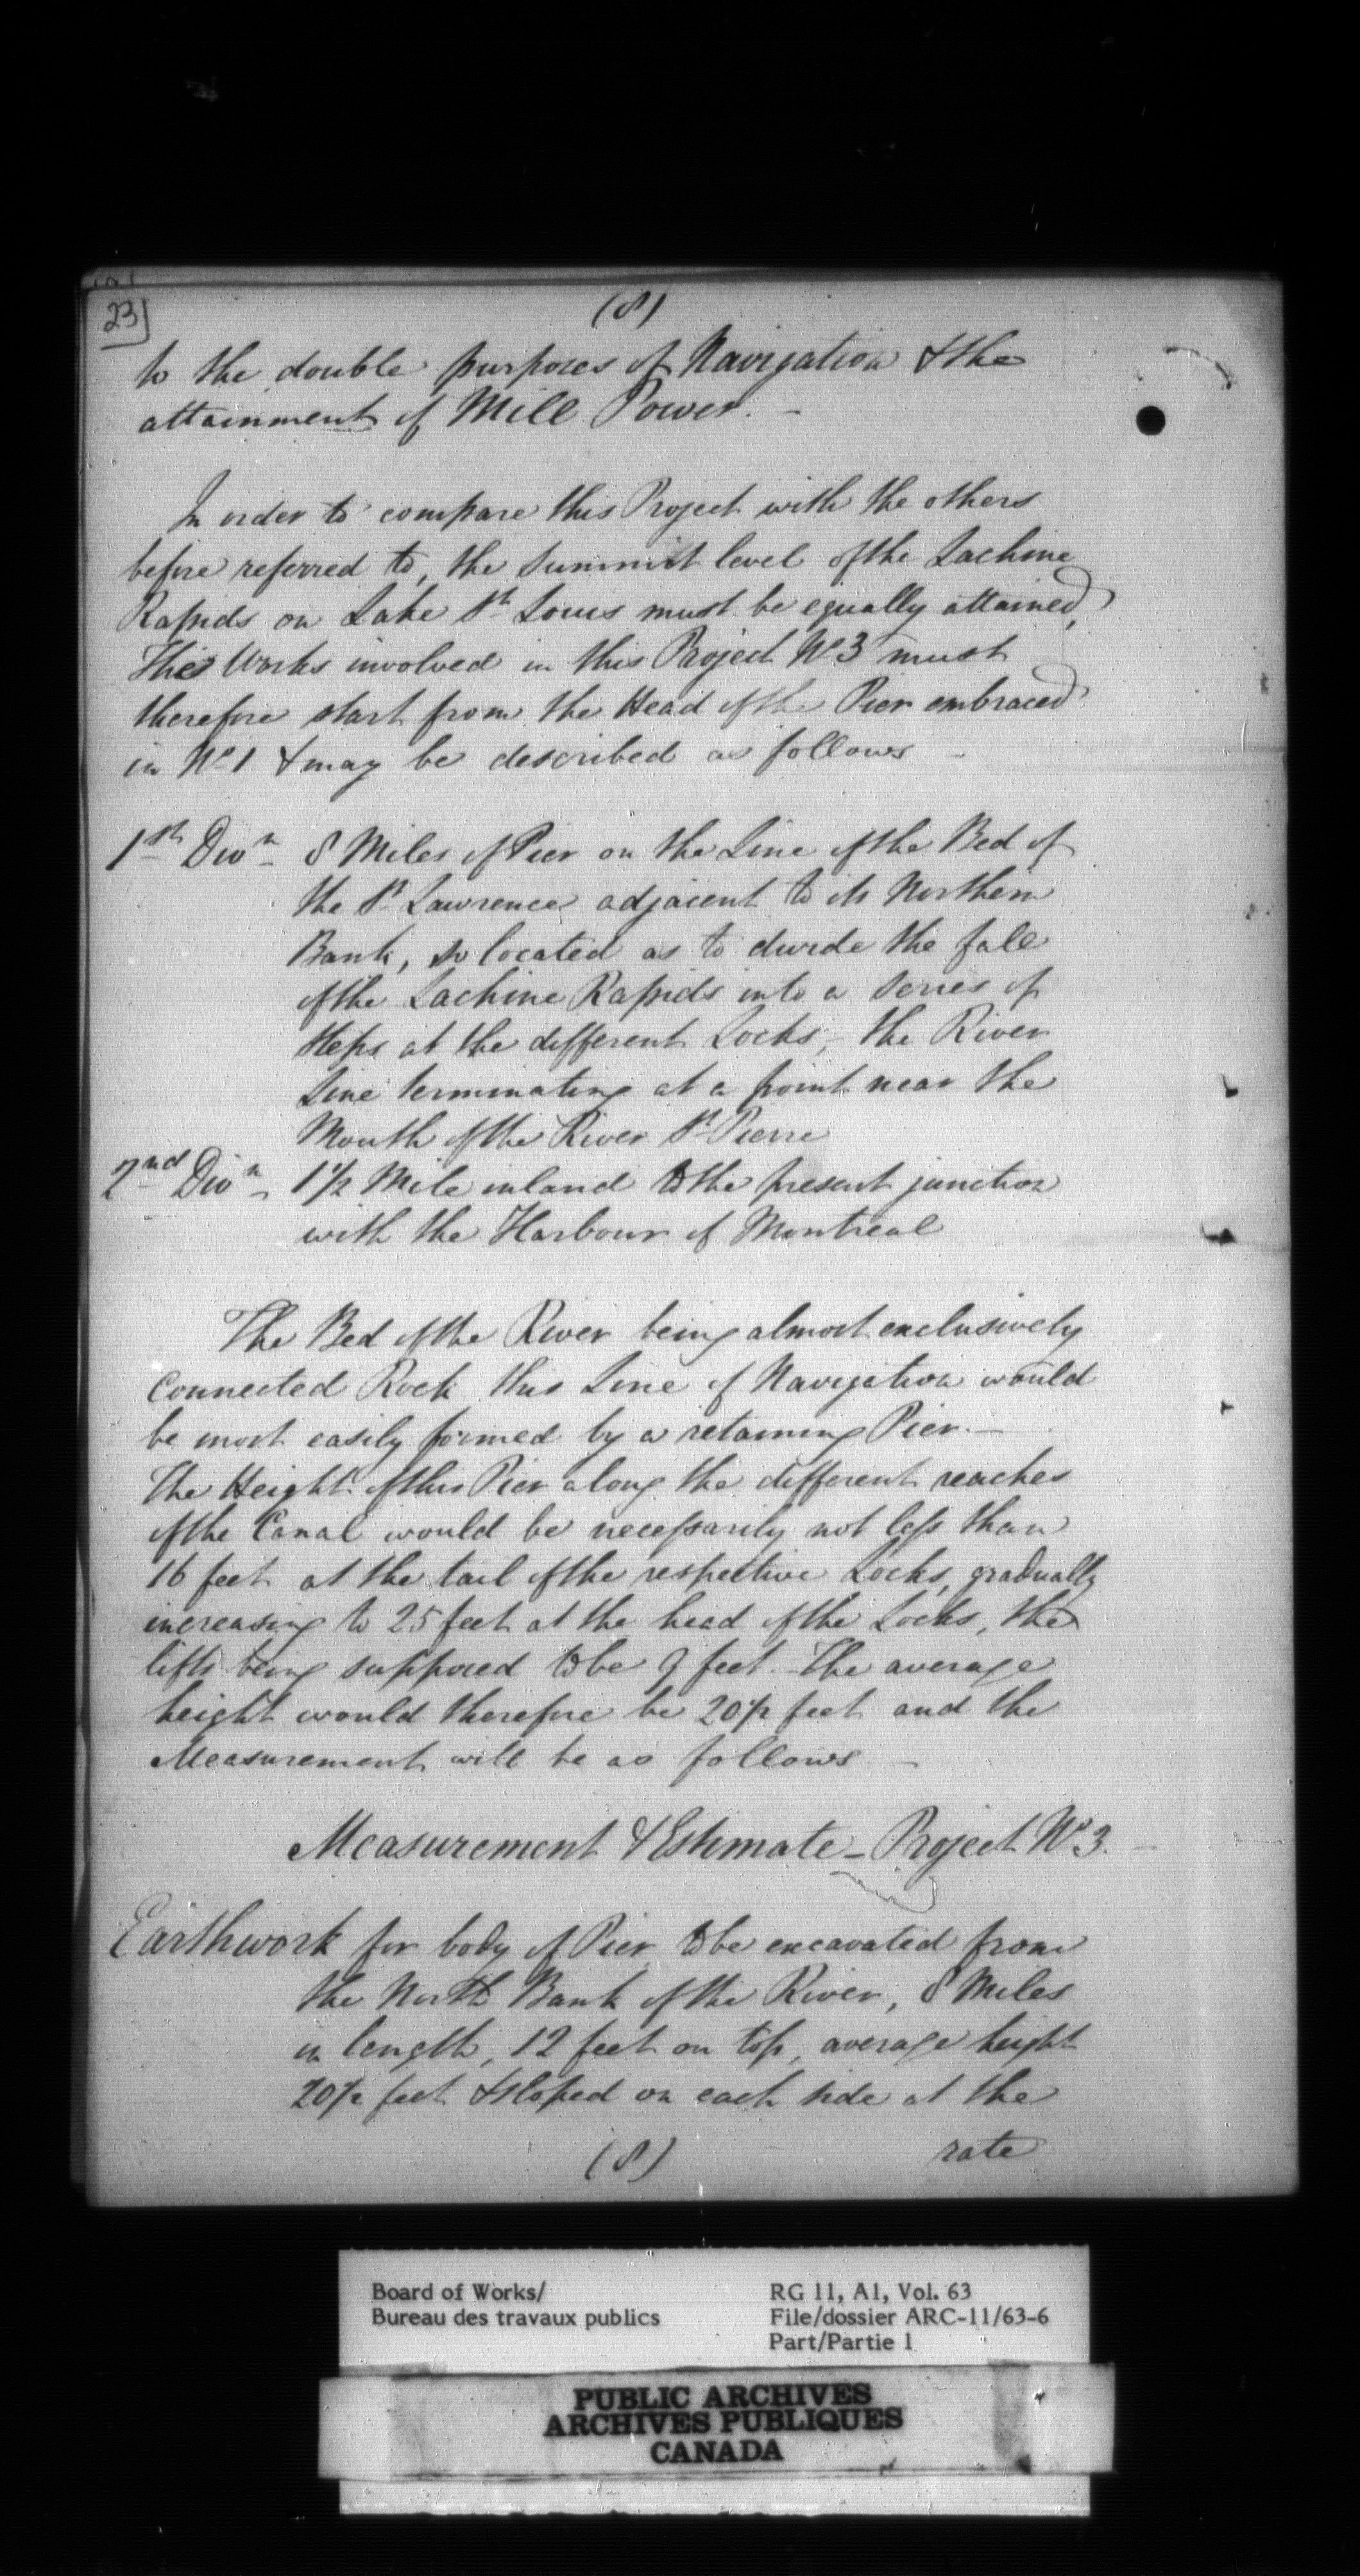 (8)
23
to the double purposes of Navigation & the
attainment of Mill Power. -
In order to compare this Project with the others
before referred to, the Summit level of the Lachine
Rapids on Lake St Louis must be equally attained,
The Works involved in this Project No 3 must
therefore start from the Head of the Pier embraced
in No 1 & may be described as follows -
1st Divn 8 Miles of Pier on the Line of the Bed of
the St Lawrence adjacent to its Northern
Bank, so located as to divide the fall
of the Lachine Rapids into a Series of
Steps at the different Locks, - the River
Line terminating at a point near the
Mouth of the River St Pierre
2nd Divn 1 1/2 Mile inland to the present junction
with the Harbour of Montreal
The Bed of the River being almost exclusively
Connected Rock this Line of Navigation would
be most easily formed by a retaining Pier. -
The Height of this Pier along the different reaches
of the Canal would be necessarily not less than
16 feet at the tail of the respective Locks, gradually
increasing to 25 feet at the head of the Locks, the
lifts being supposed to be 9 feet. - The average
height would therefore be 20 1/2 feet and the
Measurement will be as follows -
Measurement & Estimate - Project No 3. -
Earthwork for body of Pier to be excavated from
the North Bank of the River, 8 Miles
in length, 12 feet on top, average height
20 1/2 feet & sloped on each side at the
(8) rate
Board of Works/
Bureau des travaux publics
RG 11, A1, Vol. 63
File/dossier ARC-11/63-6
Part/Partie 1
PUBLIC ARCHIVES
ARCHIVES PUBLIQUES
CANADA